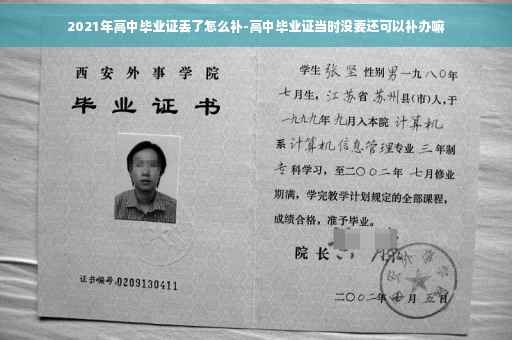 2021年高中毕业证丢了怎么补-高中毕业证当时没要还可以补办嘛
西安外事学院
毕业证书
证书编号:0209130411
学生 张坚 性别 男 一九八〇年
七月生，江苏省苏州县(市)人，于
一九九九年 九月入本院 计算机
系 计算机信息管理 专业 三 年制
专 科学习，至二〇〇二年 七月修业
期满，学完教学计划规定的全部课程，
成绩合格，准予毕业。
院长
二〇〇二年 月 五日